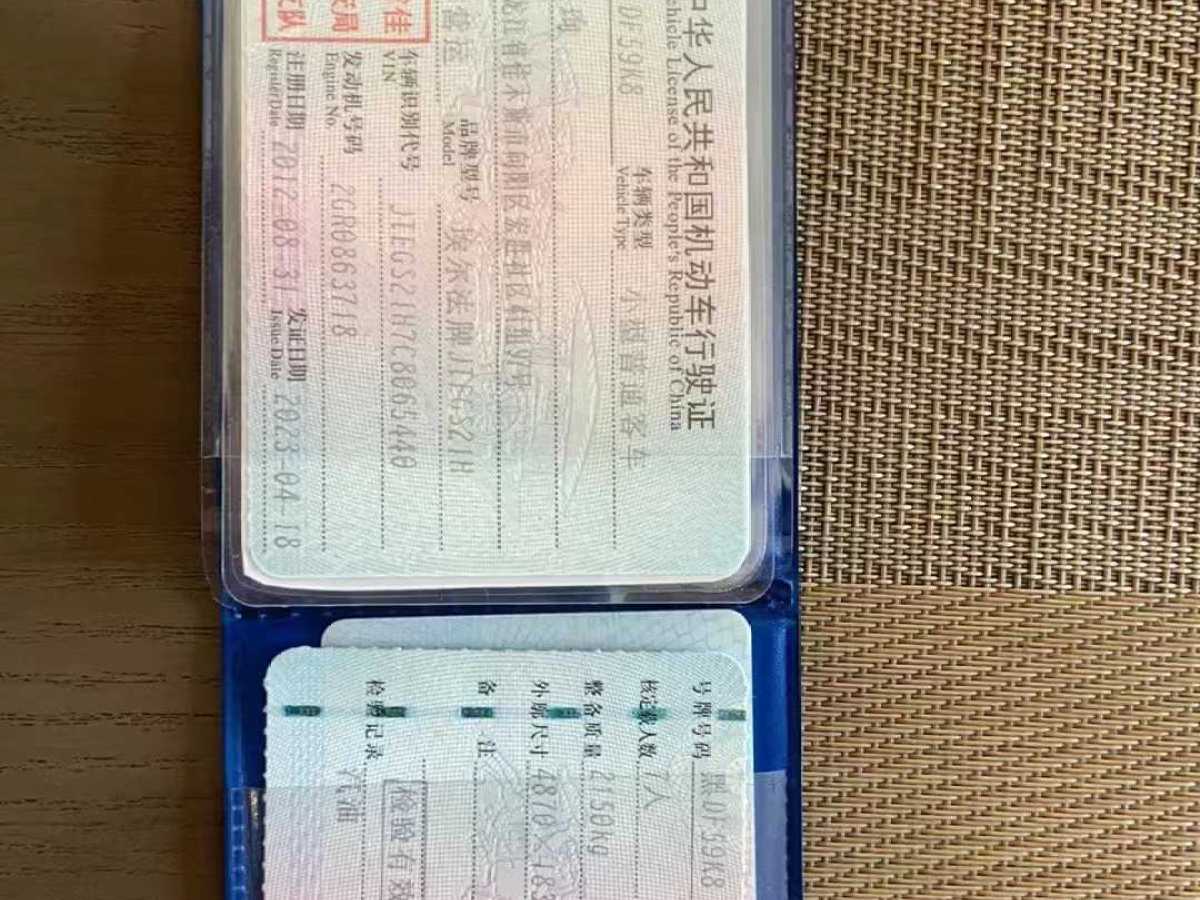 中华人民共和国机动车行驶证
Vehicle License of the People's Republic of China
DF59K8
车辆类型 小型普通客车
Vehicle Type
龙江省佳木斯市向阳区
营运
品牌型号 埃尔法牌JTEGS21H
Model
车辆识别代号 JTEGS21H7C8065440
VIN
发动机号码 2GR0863718
Engine No.
注册日期 2012-08-31 发证日期 2023-04-18
Register Date Issue Date
佳
局
支队
号牌号码 黑DF59K8
核定载人数 7人
整备质量 2150kg
外廓尺寸 4870×183
备 注
检验有效
检验记录
汽油